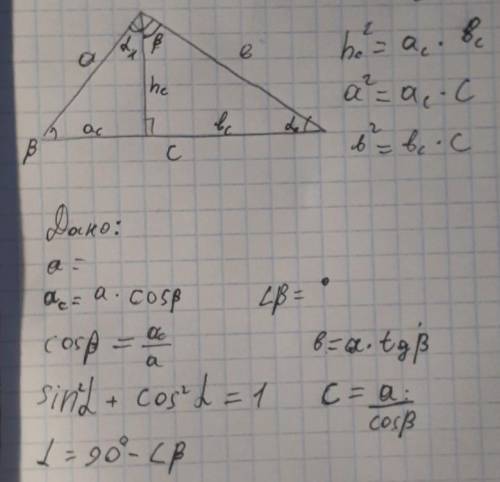 a α₁ β в
hc² = ac · вc
hc
a² = ac · C
β ac вc α
C
в² = вc · C
Дано:
a =
ac = a · cosβ ∠β = °
cosβ = ac/a в = a · tgβ
sin²α + cos²α = 1 C = a : / cosβ
α = 90° - ∠β